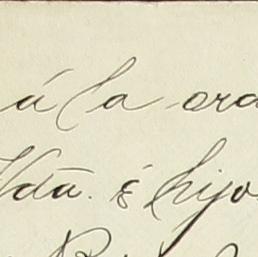 á la ord
Vda. é hijo